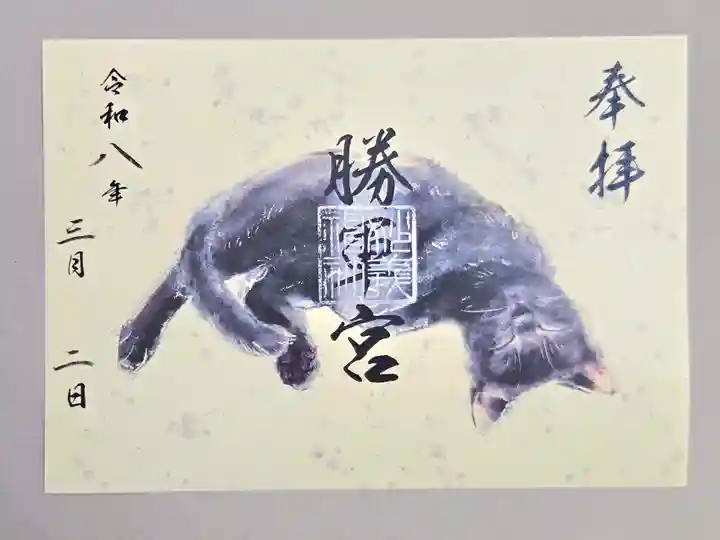 奉拝
勝軍宮
令和八年
三月
二日